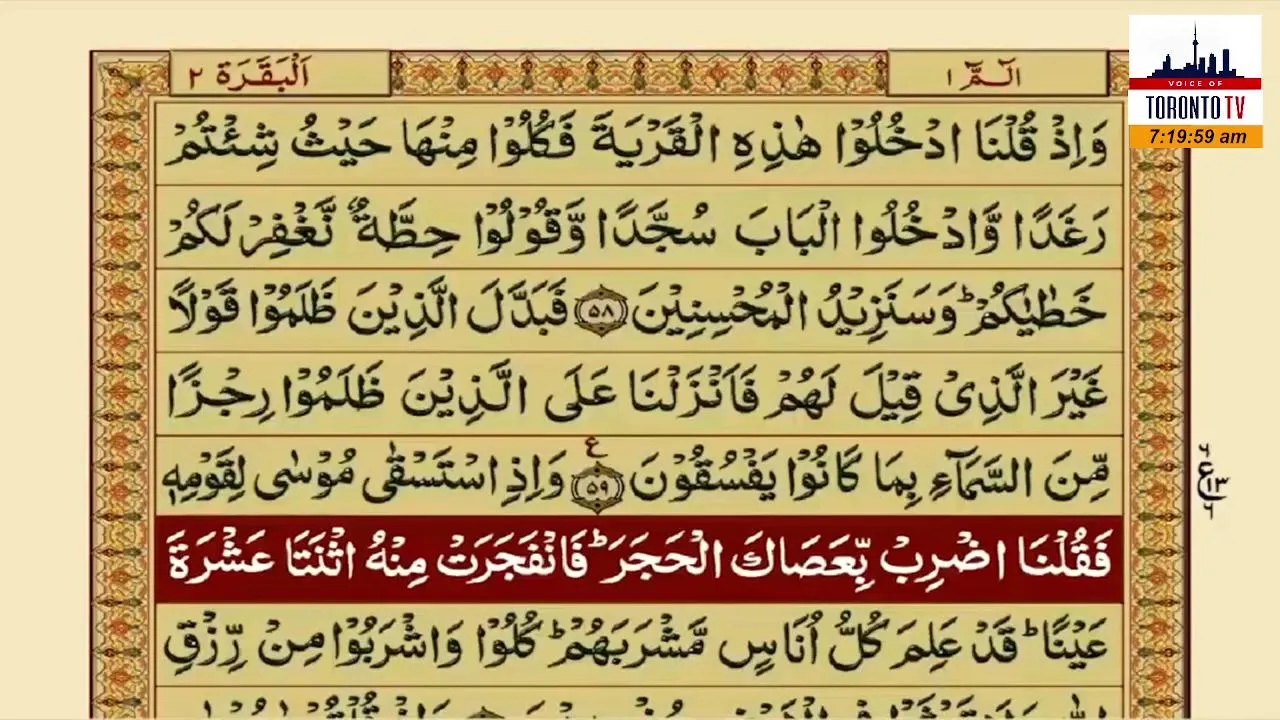 اَلۡبَقَرَة ٢
الٓـمّٓ ١
VOICE OF
TORONTO TV
7:19:59 am
وَاِذۡ قُلۡنَا ادۡخُلُوۡا هٰذِهِ الۡقَرۡيَةَ فَکُلُوۡا مِنۡهَا حَيۡثُ شِئۡتُمۡ
رَغَدًا وَّادۡخُلُوا الۡبَابَ سُجَّدًا وَّقُوۡلُوۡا حِطَّةٌ نَّغۡفِرۡ لَـكُمۡ
خَطٰيٰكُمۡؕ وَسَنَزِيۡدُ الۡمُحۡسِنِيۡنَ ۵۸ فَبَدَّلَ الَّذِيۡنَ ظَلَمُوۡا قَوۡلًا
غَيۡرَ الَّذِىۡ قِيۡلَ لَهُمۡ فَاَنۡزَلۡنَا عَلَى الَّذِيۡنَ ظَلَمُوۡا رِجۡزًا
مِّنَ السَّمَآءِ بِمَا كَانُوۡا يَفۡسُقُوۡنَ ۵۹ ع وَاِذِ اسۡتَسۡقٰى مُوۡسٰى لِقَوۡمِهٖ
فَقُلۡنَا اضۡرِبۡ بِّعَصَاكَ الۡحَجَرَؕ فَانۡفَجَرَتۡ مِنۡهُ اثۡنَتَا عَشۡرَةَ
عَيۡنًاؕ قَدۡ عَلِمَ کُلُّ اُنَاسٍ مَّشۡرَبَهُمۡؕ کُلُوۡا وَاشۡرَبُوۡا مِنۡ رِّزۡقِ